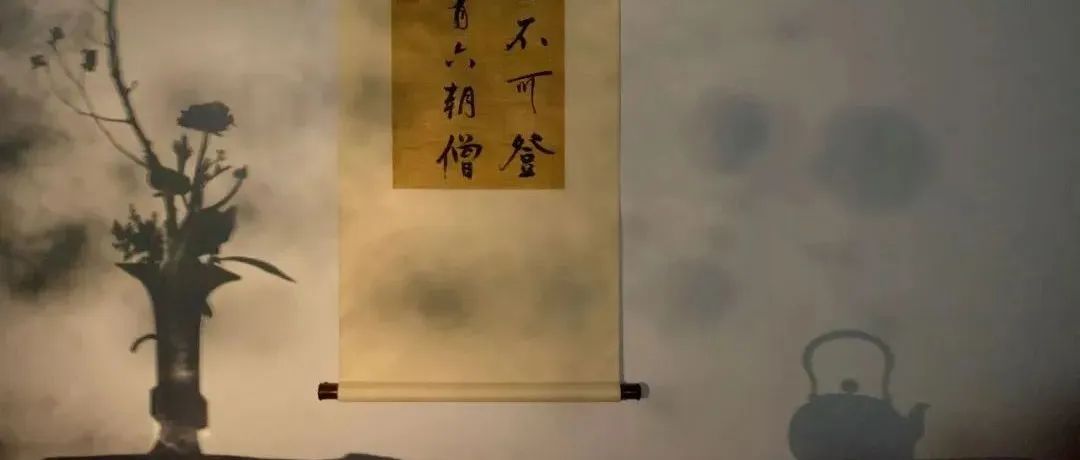 不可登
有六朝僧